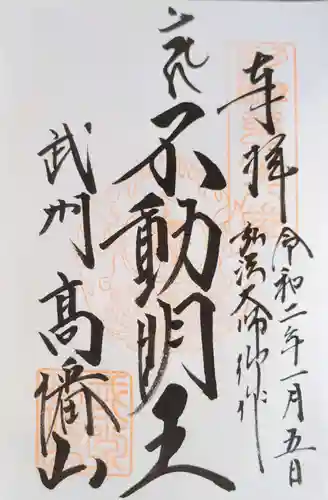 奉拝
令和二年一月五日
弘法大師御作
不動明王
武州 高幡山